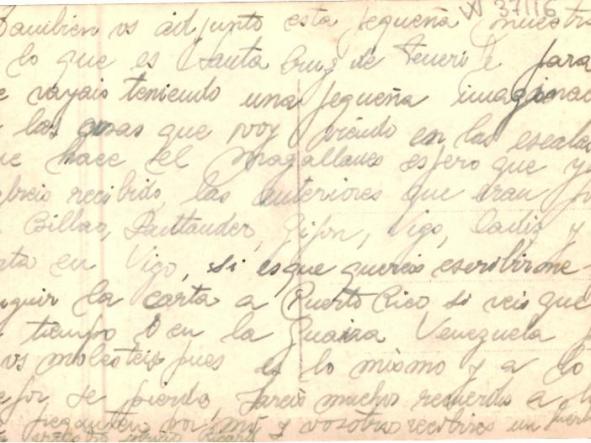 W 37116
Tambien os adjunto esta pequeña muestra
lo que es Santa Cruz de Teneri fe para
e vayais teniendo una pequeña imaginac
las cosas que voy viendo en las escalas
ue hace el Magallanes espero que y
abreis recibido, las anteriores que eran
Bilbao, Santander, Gijon, Vigo, Cadiz y
en Vigo, si es que quereis escribirme
la carta a Puerto Rico si veis que
tiempo o en la Guaira Venezuela
os molesteis pues es lo mismo y a lo
se pierda Dareis muchos recuerdos a
pregunten por mi y vosotros recibires un fuerte